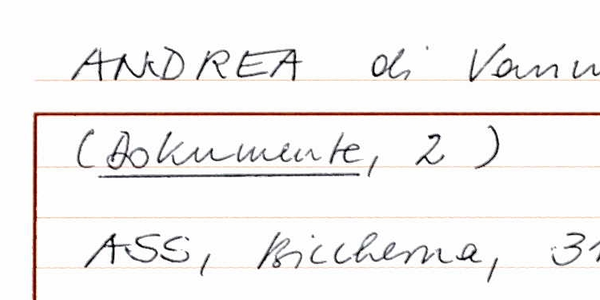 ANDREA di Vann
(Dokumente, 2)
ASS, Biccherna, 31